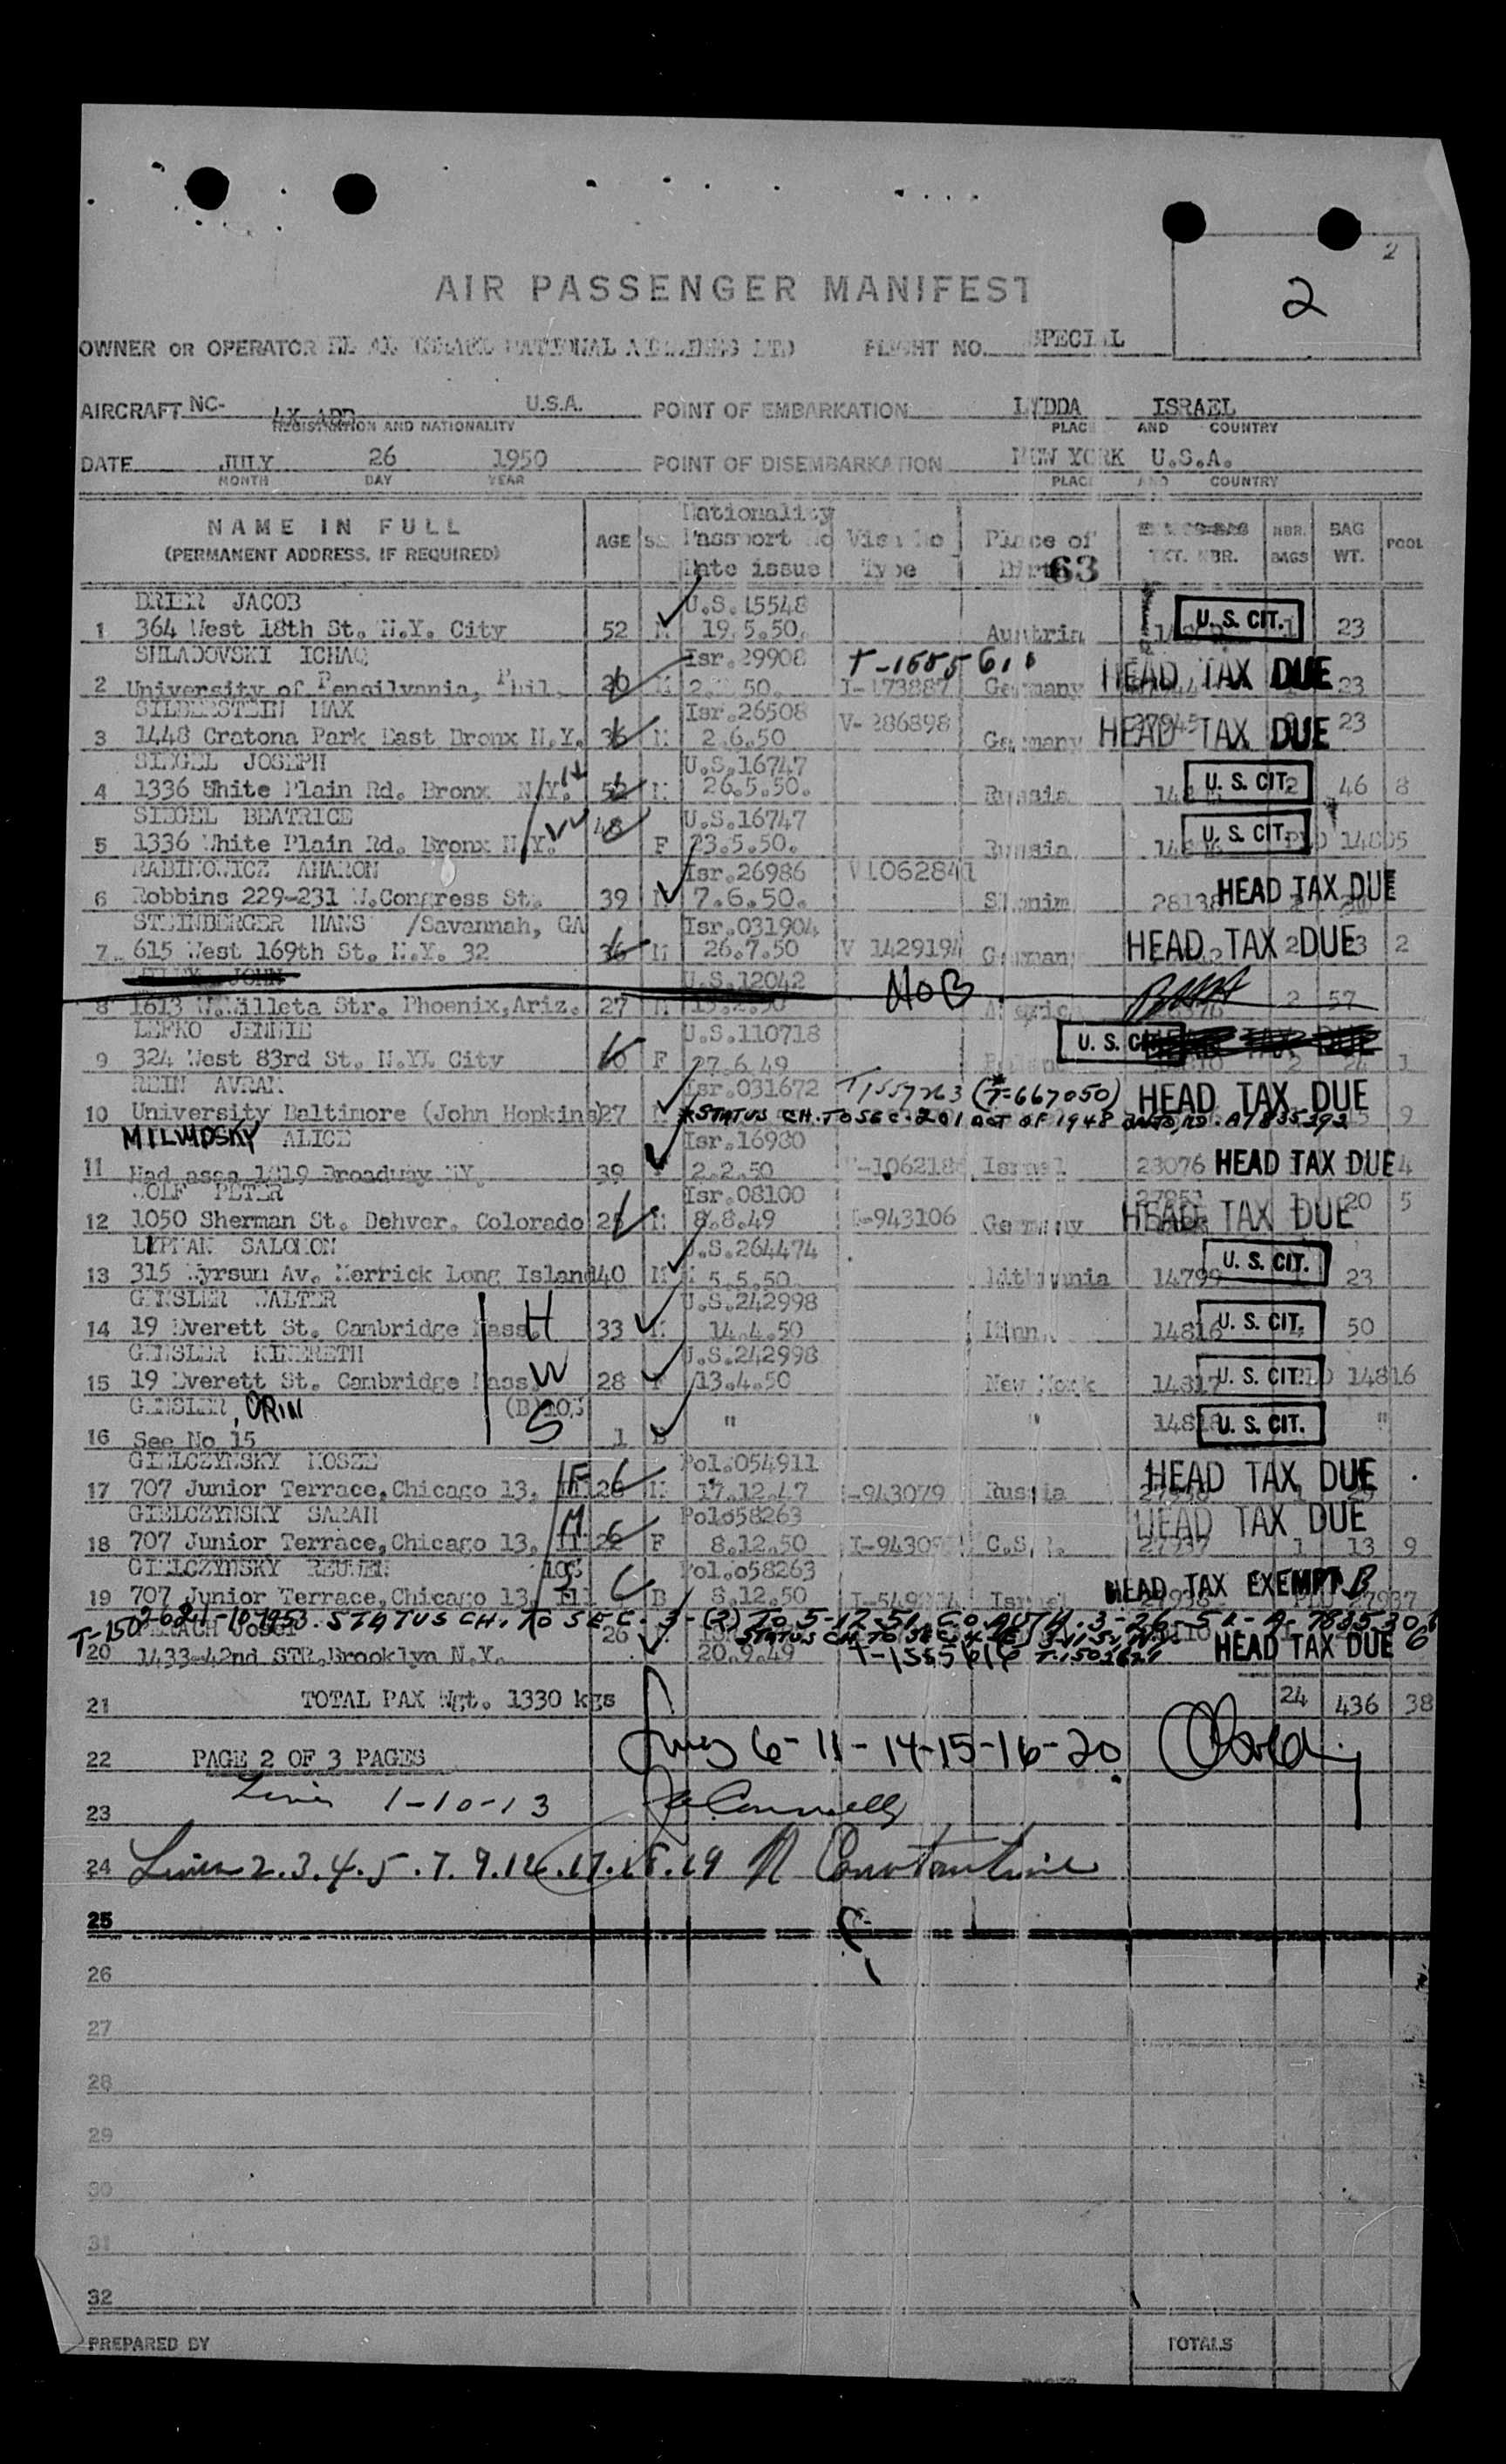 2
2
AIR PASSENGER MANIFEST
OWNER OR OPERATOR EL AL ISRAEL NATIONAL AIRLINES LTD FLIGHT NO. SPECIAL
AIRCRAFT NC- 4X-ADD U.S.A. POINT OF EMBARKATION LYDDA ISRAEL
REGISTRATION AND NATIONALITY PLACE AND COUNTRY
DATE JULY 26 1950 POINT OF DISEMBARKATION NEW YORK U.S.A.
MONTH DAY YEAR PLACE AND COUNTRY
NAME IN FULL AGE Nationality Passport No Date issue Visa No Type Place of Birth TKT. NBR. NBR. BAGS BAG WT. POOL
(PERMANENT ADDRESS, IF REQUIRED)
63
DRIER JACOB U.S.15548
1 364 West 18th St. N.Y. City 52 M 19.5.50. Austria U. S. CIT. 1 23
SHLADOVSKI ICHAQ Isr.29908
2 University of Pensilvania, Phil. M 50. Germany HEAD TAX DUE 23
SILBERSTEIN MAX Isr.26508 V-286898
3 1448 Cratona Park East Bronx N.Y. 36 M 2.6.50 Germany HEAD TAX DUE 23
SIEGEL JOSEPH U.S.16747
4 1336 White Plain Rd. Bronx N.Y. H 52 M 26.5.50. Russia U. S. CIT. 2 46 8
SIEGEL BEATRICE 48 U.S.16747
5 1336 White Plain Rd. Bronx N.Y. W F 23.5.50. Russia U. S. CIT. 14805
RABINOWICZ AHARON Isr.26986 V1062841
6 Robbins 229-231 W.Congress St. 39 M 7.6.50. Slonim 28138 HEAD TAX DUE
STEINBERGER HANS /Savannah, GA Isr.031904
7 615 West 169th St. N.Y. 32 36 M 26.7.50 V 1429194 Germany HEAD TAX DUE 2 2
JOHN U.S.12042 NOB
8 1613 W.Willeta Str. Phoenix,Ariz. 27 M 2 57
LEFKO JENNIE U.S.110718
9 324 West 83rd St. N.Y. City F 27.6.49 U. S. CIT. HEAD TAX DUE 1
REIN AVRAM Isr.031672 T1557263 (*T-667050) HEAD TAX DUE
10 University Baltimore (John Hopkins) 27 *STATUS CH. TO SEC. 201 ACT OF 1948 A7835392 9
MILWIDSKY ALICE Isr.16980
11 Hadassa 1819 Broadway NY. 39 F 2.2.50 Israel 28076 HEAD TAX DUE 4
WOLF PETER Isr.08100
12 1050 Sherman St. Dehver. Colorado M 8.8.49 I-943106 Germany HEAD TAX DUE 20 5
LIPMAN SALOMON U.S.264474
13 315 Myrsun Av. Merrick Long Island 40 M 5.5.50. Lithuania 14799 U. S. CIT. 23
GENSLER WALTER U.S.242998
14 19 Everett St. Cambridge Mass. H 33 M 14.4.50 Minn. 14816 U. S. CIT. 50
GENSLER KINERETH U.S.242998
15 19 Everett St. Cambridge Mass. W 28 F 13.4.50 New York 14817 U. S. CIT. 14816
GENSLER, ORIN (B)10% S
16 See No 15 1 B " " 14818 U. S. CIT. "
GIELCZYNSKY MOSZE Pol.054911
17 707 Junior Terrace,Chicago 13. Ill F 26 M 17.12.47 I-943079 Russia HEAD TAX DUE
GIELCZYNSKY SARAH Pol.058263
18 707 Junior Terrace,Chicago 13. Ill M F 8.12.50 C.S.R. 27937 HEAD TAX DUE 1 13 9
GIELCZYNSKY REUWEN 10% Pol.058263
19 707 Junior Terrace,Chicago 13 Ill B 8.12.50 Israel 27938 HEAD TAX EXEMPT B 27937
STATUS CH. TO SEC. 3-(2) TO 5-12-51. CO AUTH. 3-26-51-
20 1433-42nd STR.Brooklyn N.Y. 26 20.9.49 T-1555616 HEAD TAX DUE 6
21 TOTAL PAX Wgt. 1330 kgs 24 436 38
22 PAGE 2 OF 3 PAGES Lines 6-11-14-15-16-20
23 Lines 1-10-13
24 Lines 2.3.4.5.7.9.12.17.18.19
25
26
27
28
29
30
31
32
PREPARED BY TOTALS